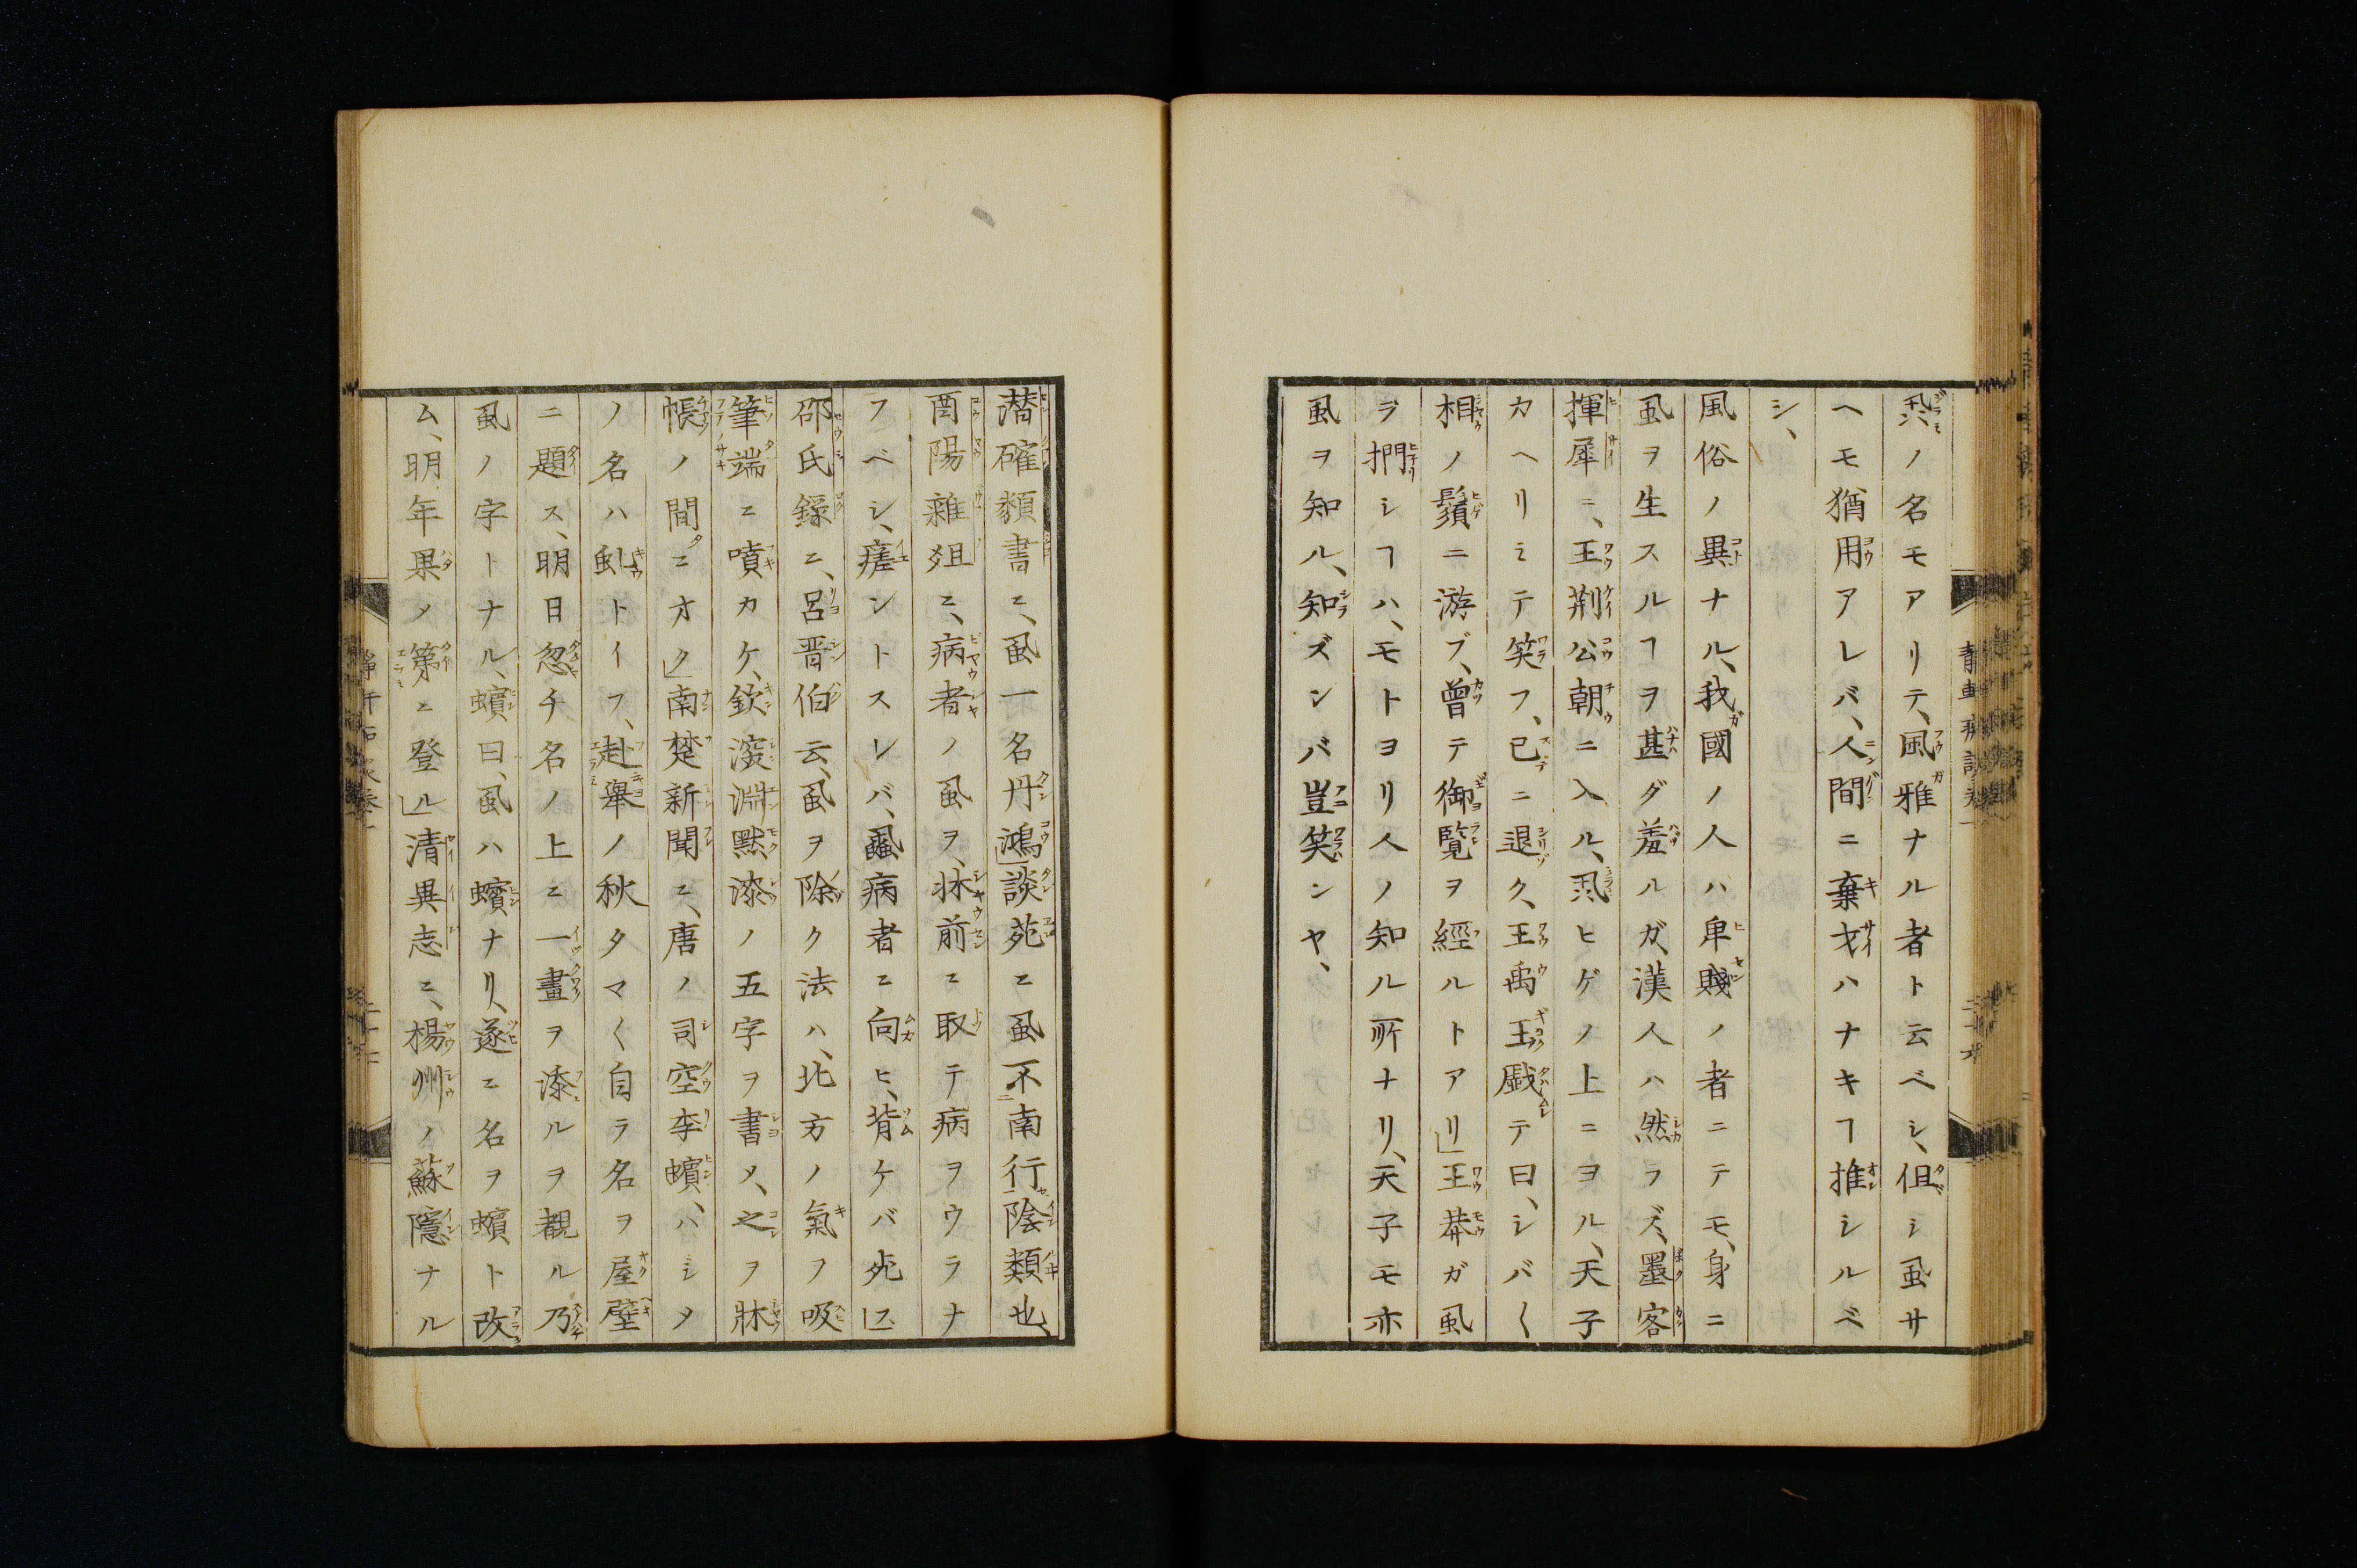 虱ノ名モアリテ、風雅ナル者ト云ベシ、伹シ虱サ
ヘモ猶用アレバ、人間ニ棄才ハナキヿ推シルベ
シ、
風俗ノ異ナル、我國ノ人ハ卑賤ノ者ニテモ、身ニ
虱ヲ生スルヿヲ甚グ羞ルガ、漢人ハ然ラズ、墨客
揮犀ニ、王荆公朝ニ入ル、虱ヒゲノ上ニヨル、天子
カヘリミテ笑フ、已ニ退ク、王禹玉戯テ曰、シバ〱
相ノ鬚ニ游ブ、曽テ御覽ヲ經ルトアリ」王莽ガ虱
ラ捫シヿハ、モトヨリ人ノ知ル所ナリ、天子モ亦
虱ヲ知ル、知ズンバ豈笑ンヤ、
潜確類書ニ、虱一名丹鴻」談苑ニ虱不南行陰類也、
酉陽雜爼ニ、病者ノ虱ヲ、牀前ニ取テ病ヲウラナ
フベシ、瘥ントスレバ、蝨病者ニ向ヒ、背ケバ死ス」
邵氏録ニ、呂晋伯云、虱ヲ除ク法ハ、北方ノ氣ヲ吸
筆端ニ噴カケ、欽深淵默漆ノ五字ヲ書メ、之ヲ牀
帳ノ間ニオク」南楚新聞ニ、唐ノ司空李蠙、ハシメ
ノ名ハ虬トイフ、赴舉ノ秋タマ〱自ラ名ヲ屋壁
ニ題ス、明日忽チ名ノ上ニ一畫ヲ添ルヲ覩ル乃
虱ノ字トナル、蠙曰、虱ハ蠙ナリ、遂ニ名ヲ蠙ト改
ム、明年果ノ第ニ登ル」清異志ニ、楊州ノ蘇隱ナル